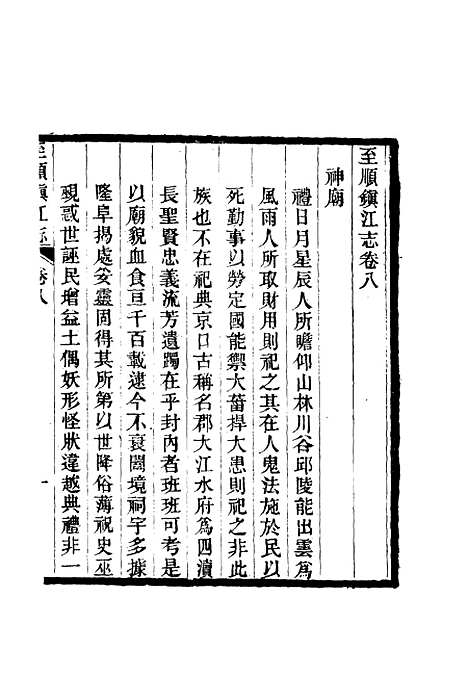 至順鎮江志卷八
神廟
禮日月星辰人所瞻仰山林川谷邱陵能出雲爲
風雨人所取財用則祀之其在人鬼法施於民以
死勤事以勞定國能禦大菑捍大患則祀之非此
族也不在祀典京口古稱名郡大江水府爲四瀆
長聖賢忠義流芳遺躅在乎封內者班班可考是
以廟貌血食亘千百載逮今不衰闔境祠宇多據
隆阜揭處妥靈固得其所第以世降俗薄祝史巫
覡惑世誣民增益土偶妖形怪狀違越典禮非一
至順鎮江志
卷八
一